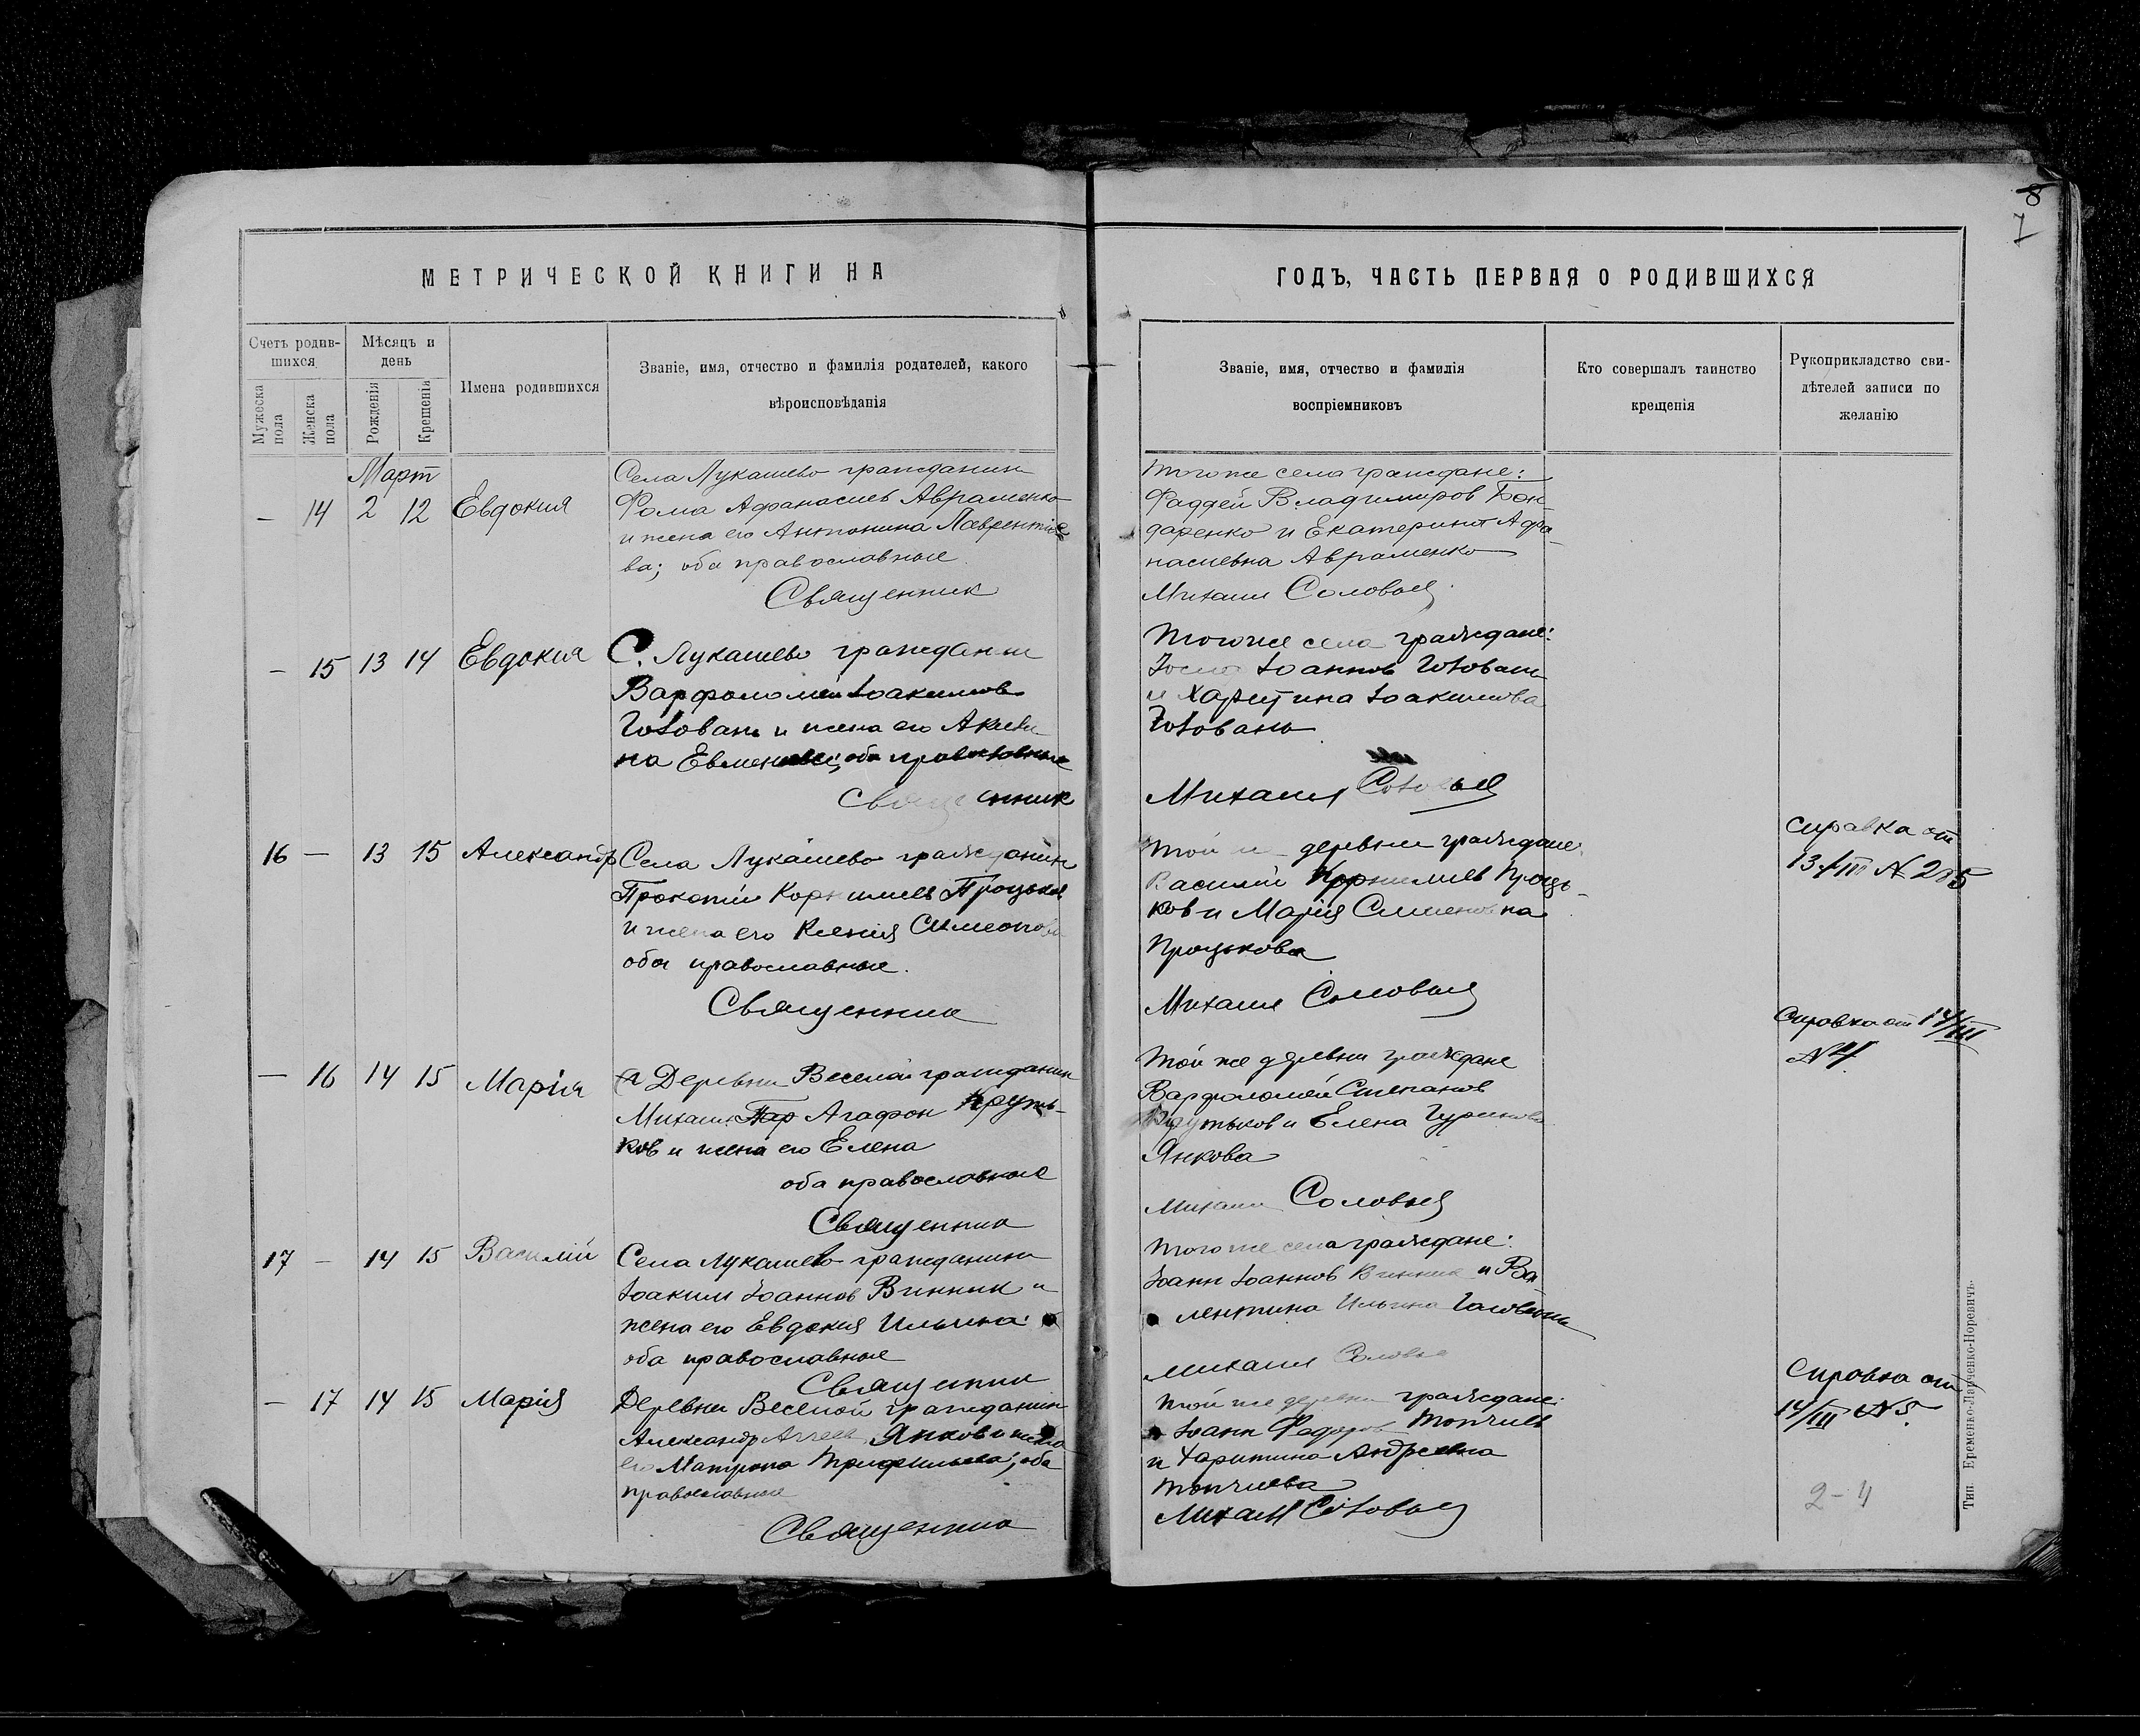 8
7
МЕТРИЧЕСКОЙ КНИГИ НА
ГОДЪ, ЧАСТЬ ПЕРВАЯ О РОДИВШИХСЯ
Счетъ родив-
шихся
Мужеска
пола
Женска
пола
Мѣсяцъ и
день
Рожденія
Крещенія
Имена родившихся
Званіе, имя, отчество и фамилія родителей, какого
вѣроисповѣданія
Званіе, имя, отчество и фамилія
воспріемниковъ
Кто совершалъ таинство
крещенія
Рукоприкладство сви-
дѣтелей записи по
желанію
Март
– 14 2 12 Евдокия
Села Лукашево гражданин
Фома Афанасиев Авраменко
и жена его Антонина Лаврентие
ва; оба православные
Священник
того же села граждане:
Фаддей Владимиров Бон-
даренко и Екатерина Афа-
насиевна Авраменко
Михаил Соловьев
– 15 13 14 Евдокия
С. Лукашево гражданин
Варфоломей Іоакимов
Головань и жена его Акили
на Евменовна; оба православные
Священник
того же села граждане:
Іоаннов Головань
и Харитина Іоакимова
Головань
Михаил Соловьев
16 – 13 15 Александр
Села Лукашево гражданин
Прокопий Корнилиев Процьков
и жена его Ксения Симеонова
оба православные.
Священник
той деревни граждане
Василий Корнилиев Проць-
ков и Мария Симеоновна
Процькова
Михаил Соловьев
Справка от
13/III N 205
– 16 14 15 Марія
Деревни Веселой гражданин
Михаил Агафон Круть-
ков и жена его Елена
оба православные
Священник
той же деревни граждане
Варфоломей Степанов
Крутьков и Елена
Янкова
Михаил Соловьев
Справка от 14/III
N 4
17 – 14 15 Василій
Села Лукашево гражданин
Іоаким Іоаннов Винник и
жена его Евдокия Ильина:
оба православные
Священник
того же села граждане:
Іоанн Іоаннов Винник и Ва
лентина Ильина Головань
Михаил Соловьев
– 17 14 15 Мария
Деревни Веселой гражданин
Александр Янков и жена
его Матрона Трифильева; оба
православные
Священник
той же деревни граждане:
Іоанн Федоров Топчиев
и Харитина Андреевна
Топчиева
Михаил Соловьев
Справка от
14/III N 5.
2-4
Тип. Еременко-Панченко-Норевичъ